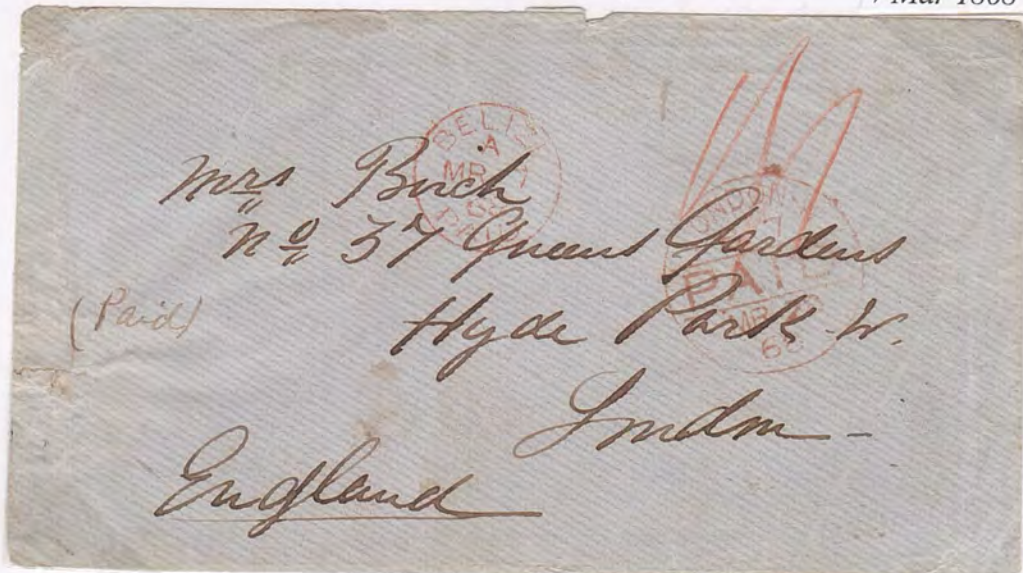 Mar 1868
BELIZE
A
MR 7
68
PAID
LONDON
PAID
MR
68
Mrs Birch
No 37 Queens Gardens
(Paid)
Hyde Park W.
London -
England